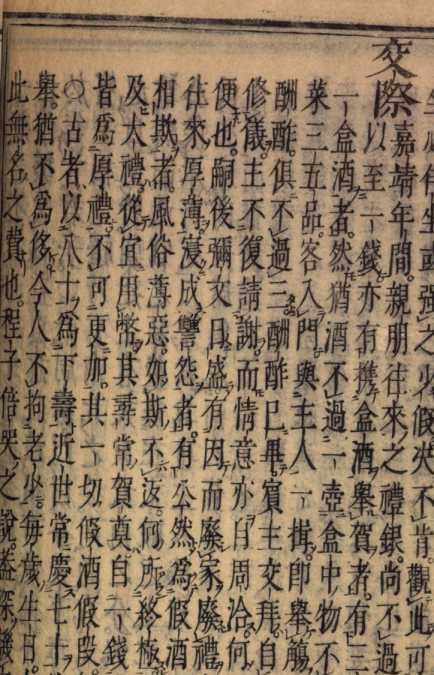 生心伴生或强之少假決不肯觀此可
交際嘉靖年間親朋往來之禮銀尚不過
以至一錢亦有携盒酒舉賀者有三
一盒酒者然猶酒不過一壺盒中物不
菜三五品客入門與主人一揖即舉觴
酬酢俱不過三酬酢已畢賓主交拜自
修儀主不復請謝而情意亦自周洽何
便也嗣後彌文日盛有因而廢家廢禮
往來厚薄寖成讐怨者有公然為假酒
相欺者風俗薄惡如斯不返何所終極
及大禮從宜用幣其尋常賀奠自一錢
皆為厚禮不可更加其一切假酒假段
○古者以八十為下壽近世常慶七十
舉猶不為侈今人不拘老少每歲生日
此無名之費也程子倍哭之說蓋深譏